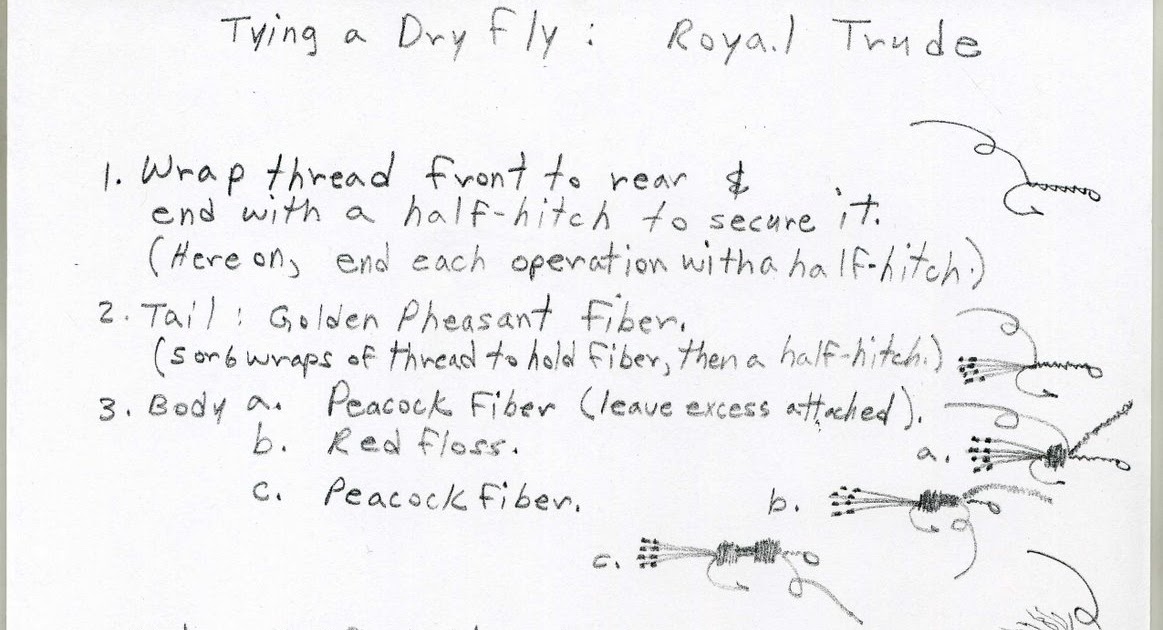 Tying a Dry Fly: Royal Trude
1. Wrap thread front to rear &
end with a half-hitch to secure it.
(Here on, end each operation with a half-hitch.)
2. Tail: Golden Pheasant Fiber.
(5 or 6 wraps of thread to hold fiber, then a half-hitch.)
3. Body a. Peacock Fiber (leave excess attached).
b. Red Floss.
c. Peacock Fiber.
a.
b.
c.